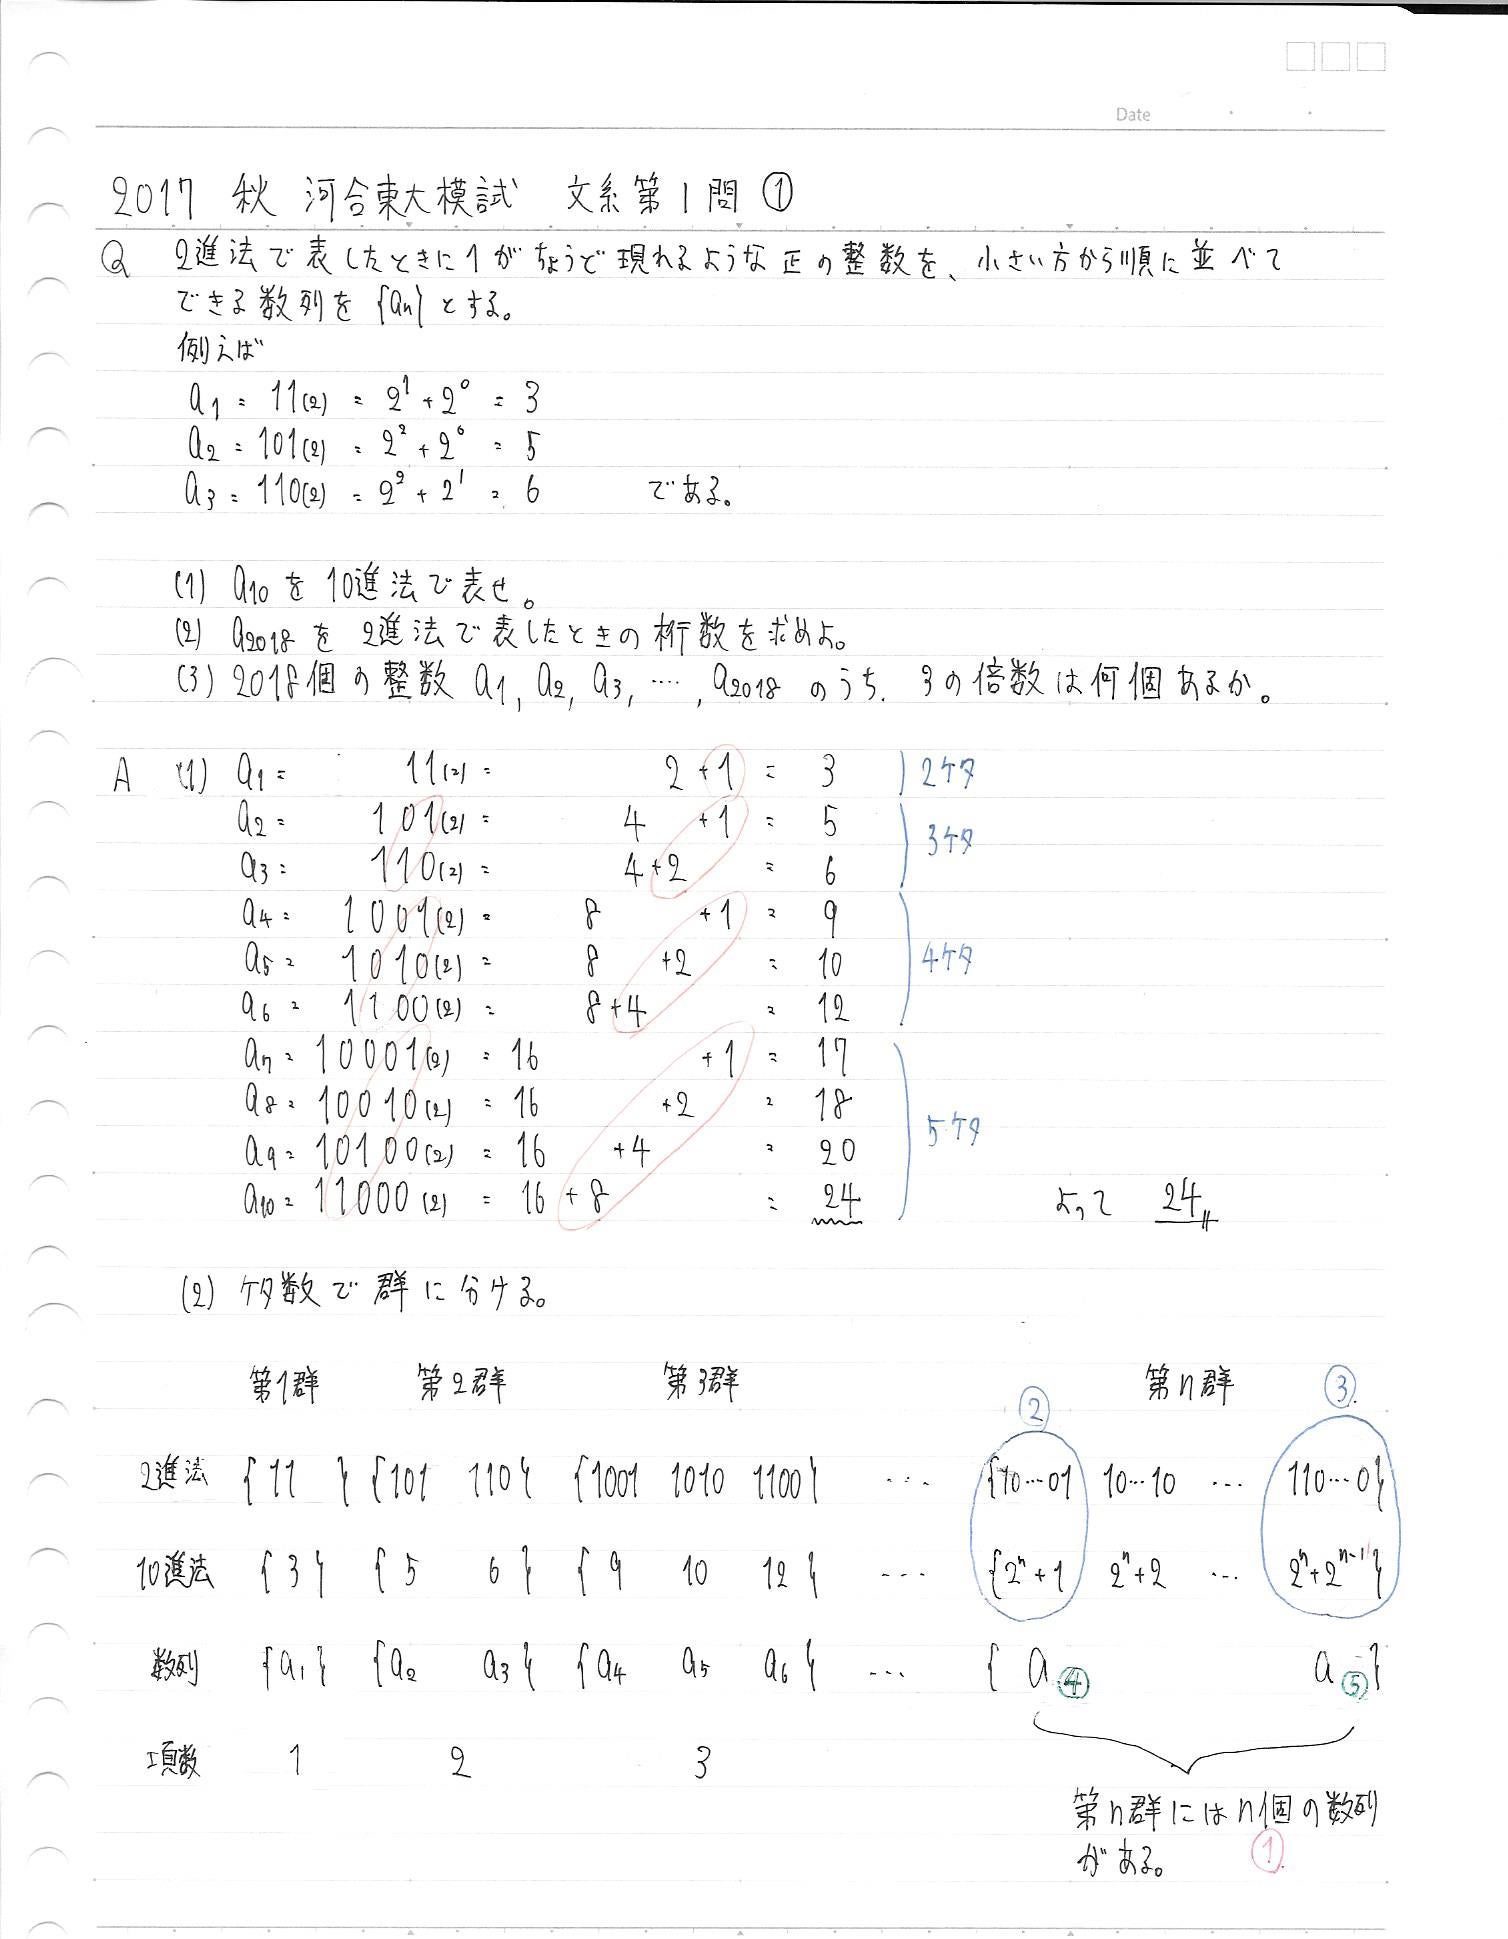 Date
2017 秋 河合東大模試 文系第1問 ①
Q 2進法で表したときに1がちょうど現れるような正の整数を、小さい方から順に並べて
できる数列を{an}とする。
例えば
a1 = 11(2) = 2^1 + 2^0 = 3
a2 = 101(2) = 2^2 + 2^0 = 5
a3 = 110(2) = 2^2 + 2^1 = 6 である。
(1) a10を10進法で表せ。
(2) a2018を2進法で表したときの桁数を求めよ。
(3) 2018個の整数 a1, a2, a3, …, a2018 のうち、3の倍数は何個あるか。
A (1) a1 = 11(2) = 2 + 1 = 3 2ケタ
a2 = 101(2) = 4 + 1 = 5
a3 = 110(2) = 4 + 2 = 6 3ケタ
a4 = 1001(2) = 8 + 1 = 9
a5 = 1010(2) = 8 + 2 = 10 4ケタ
a6 = 1100(2) = 8 + 4 = 12
a7 = 10001(2) = 16 + 1 = 17
a8 = 10010(2) = 16 + 2 = 18 5ケタ
a9 = 10100(2) = 16 + 4 = 20
a10 = 11000(2) = 16 + 8 = 24 よって 24
(2) ケタ数で群に分ける。
第1群 第2群 第3群 第n群
② ③
2進法 {11} {101 110} {1001 1010 1100} … {10…01 10…10 … 110…0}
10進法 {3} {5 6} {9 10 12} … {2^n+1 2^n+2 … 2^n+2^{n-1}}
数列 {a1} {a2 a3} {a4 a5 a6} … {a④ a⑤}
項数 1 2 3
第n群にはn個の数列
がある。 ①